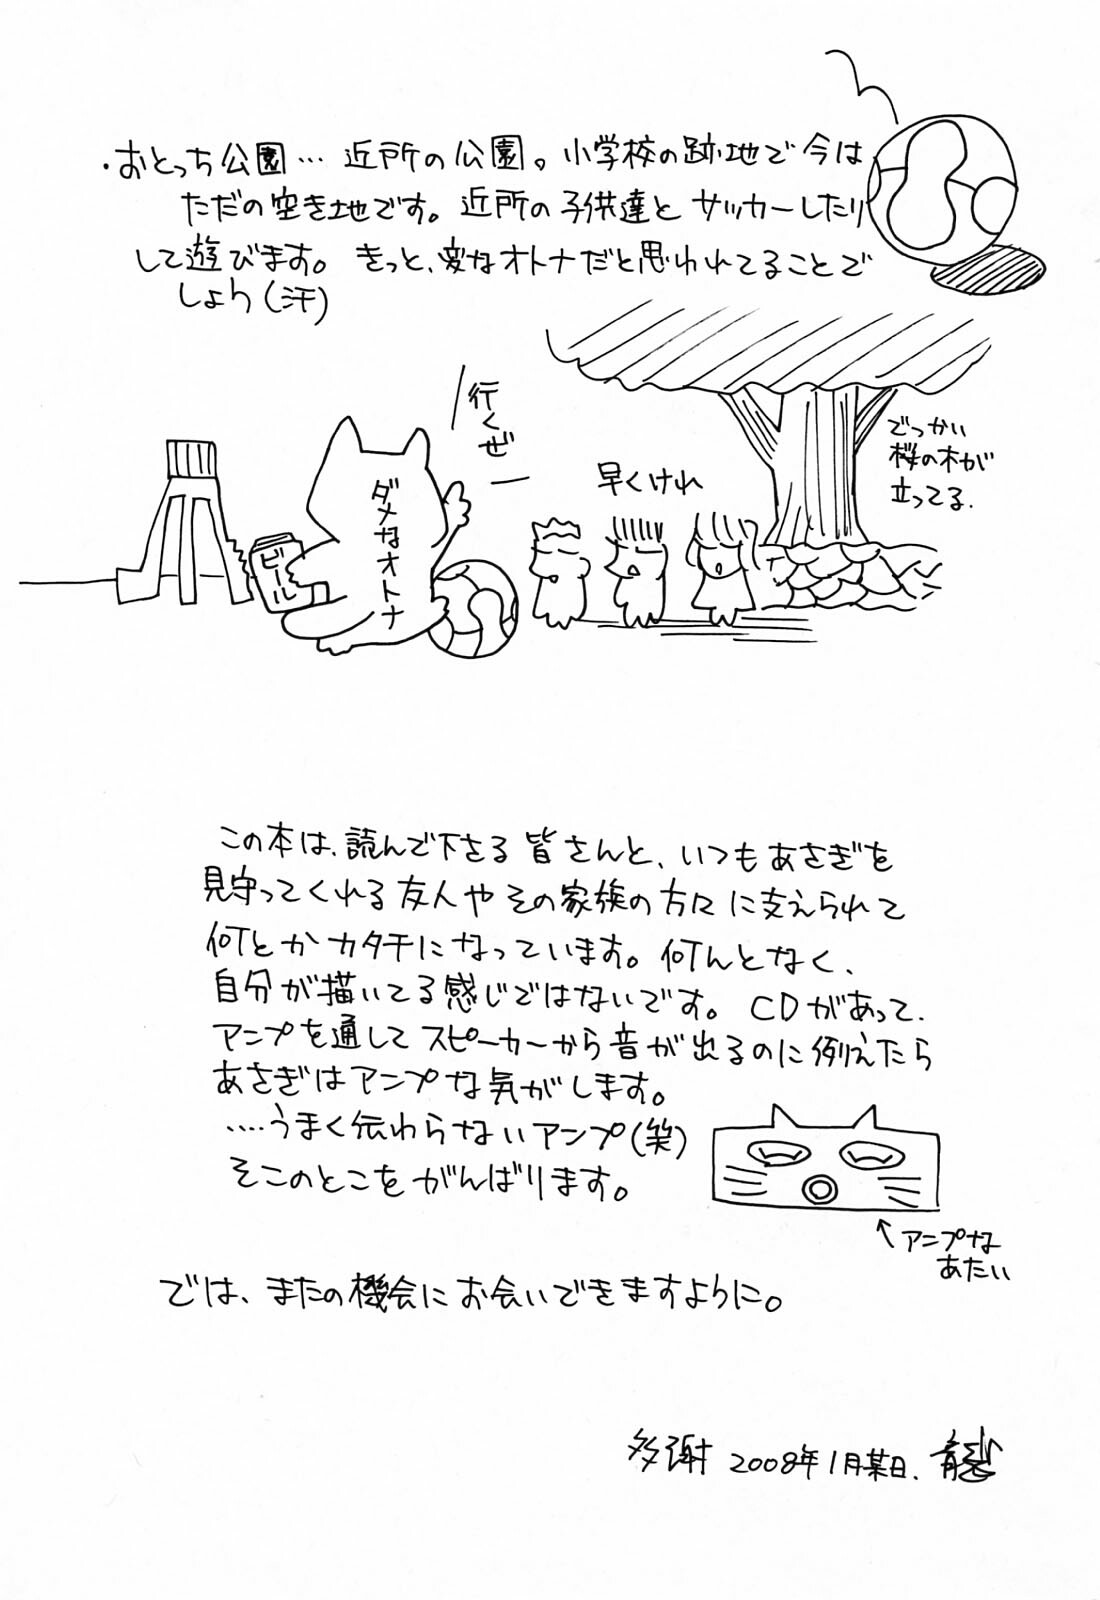 ・おとっち公園… 近所の公園。小学校の跡地で今は
ただの空き地です。近所の子供達とサッカーしたり
して遊びます。きっと、変なオトナだと思われてることで
しょう(汗)
行くぜ
ダメなオトナ
ビール
早くけれ
でっかい
桜の木が
立ってる.
この本は、読んで下さる皆さんと、いつもあさぎを
見守ってくれる友人やその家族の方々に支えられて
何とかカタチになっています。何んとなく、
自分が描いてる感じではないです。CDがあって、
アンプを通してスピーカーから音が出るのに例えたら
あさぎはアンプな気がします。
‥‥うまく伝わらないアンプ(笑)
そこのとこをがんばります。
←アンプな
あたい
では、またの機会にお会いできますように。
多謝 2008年1月某日.